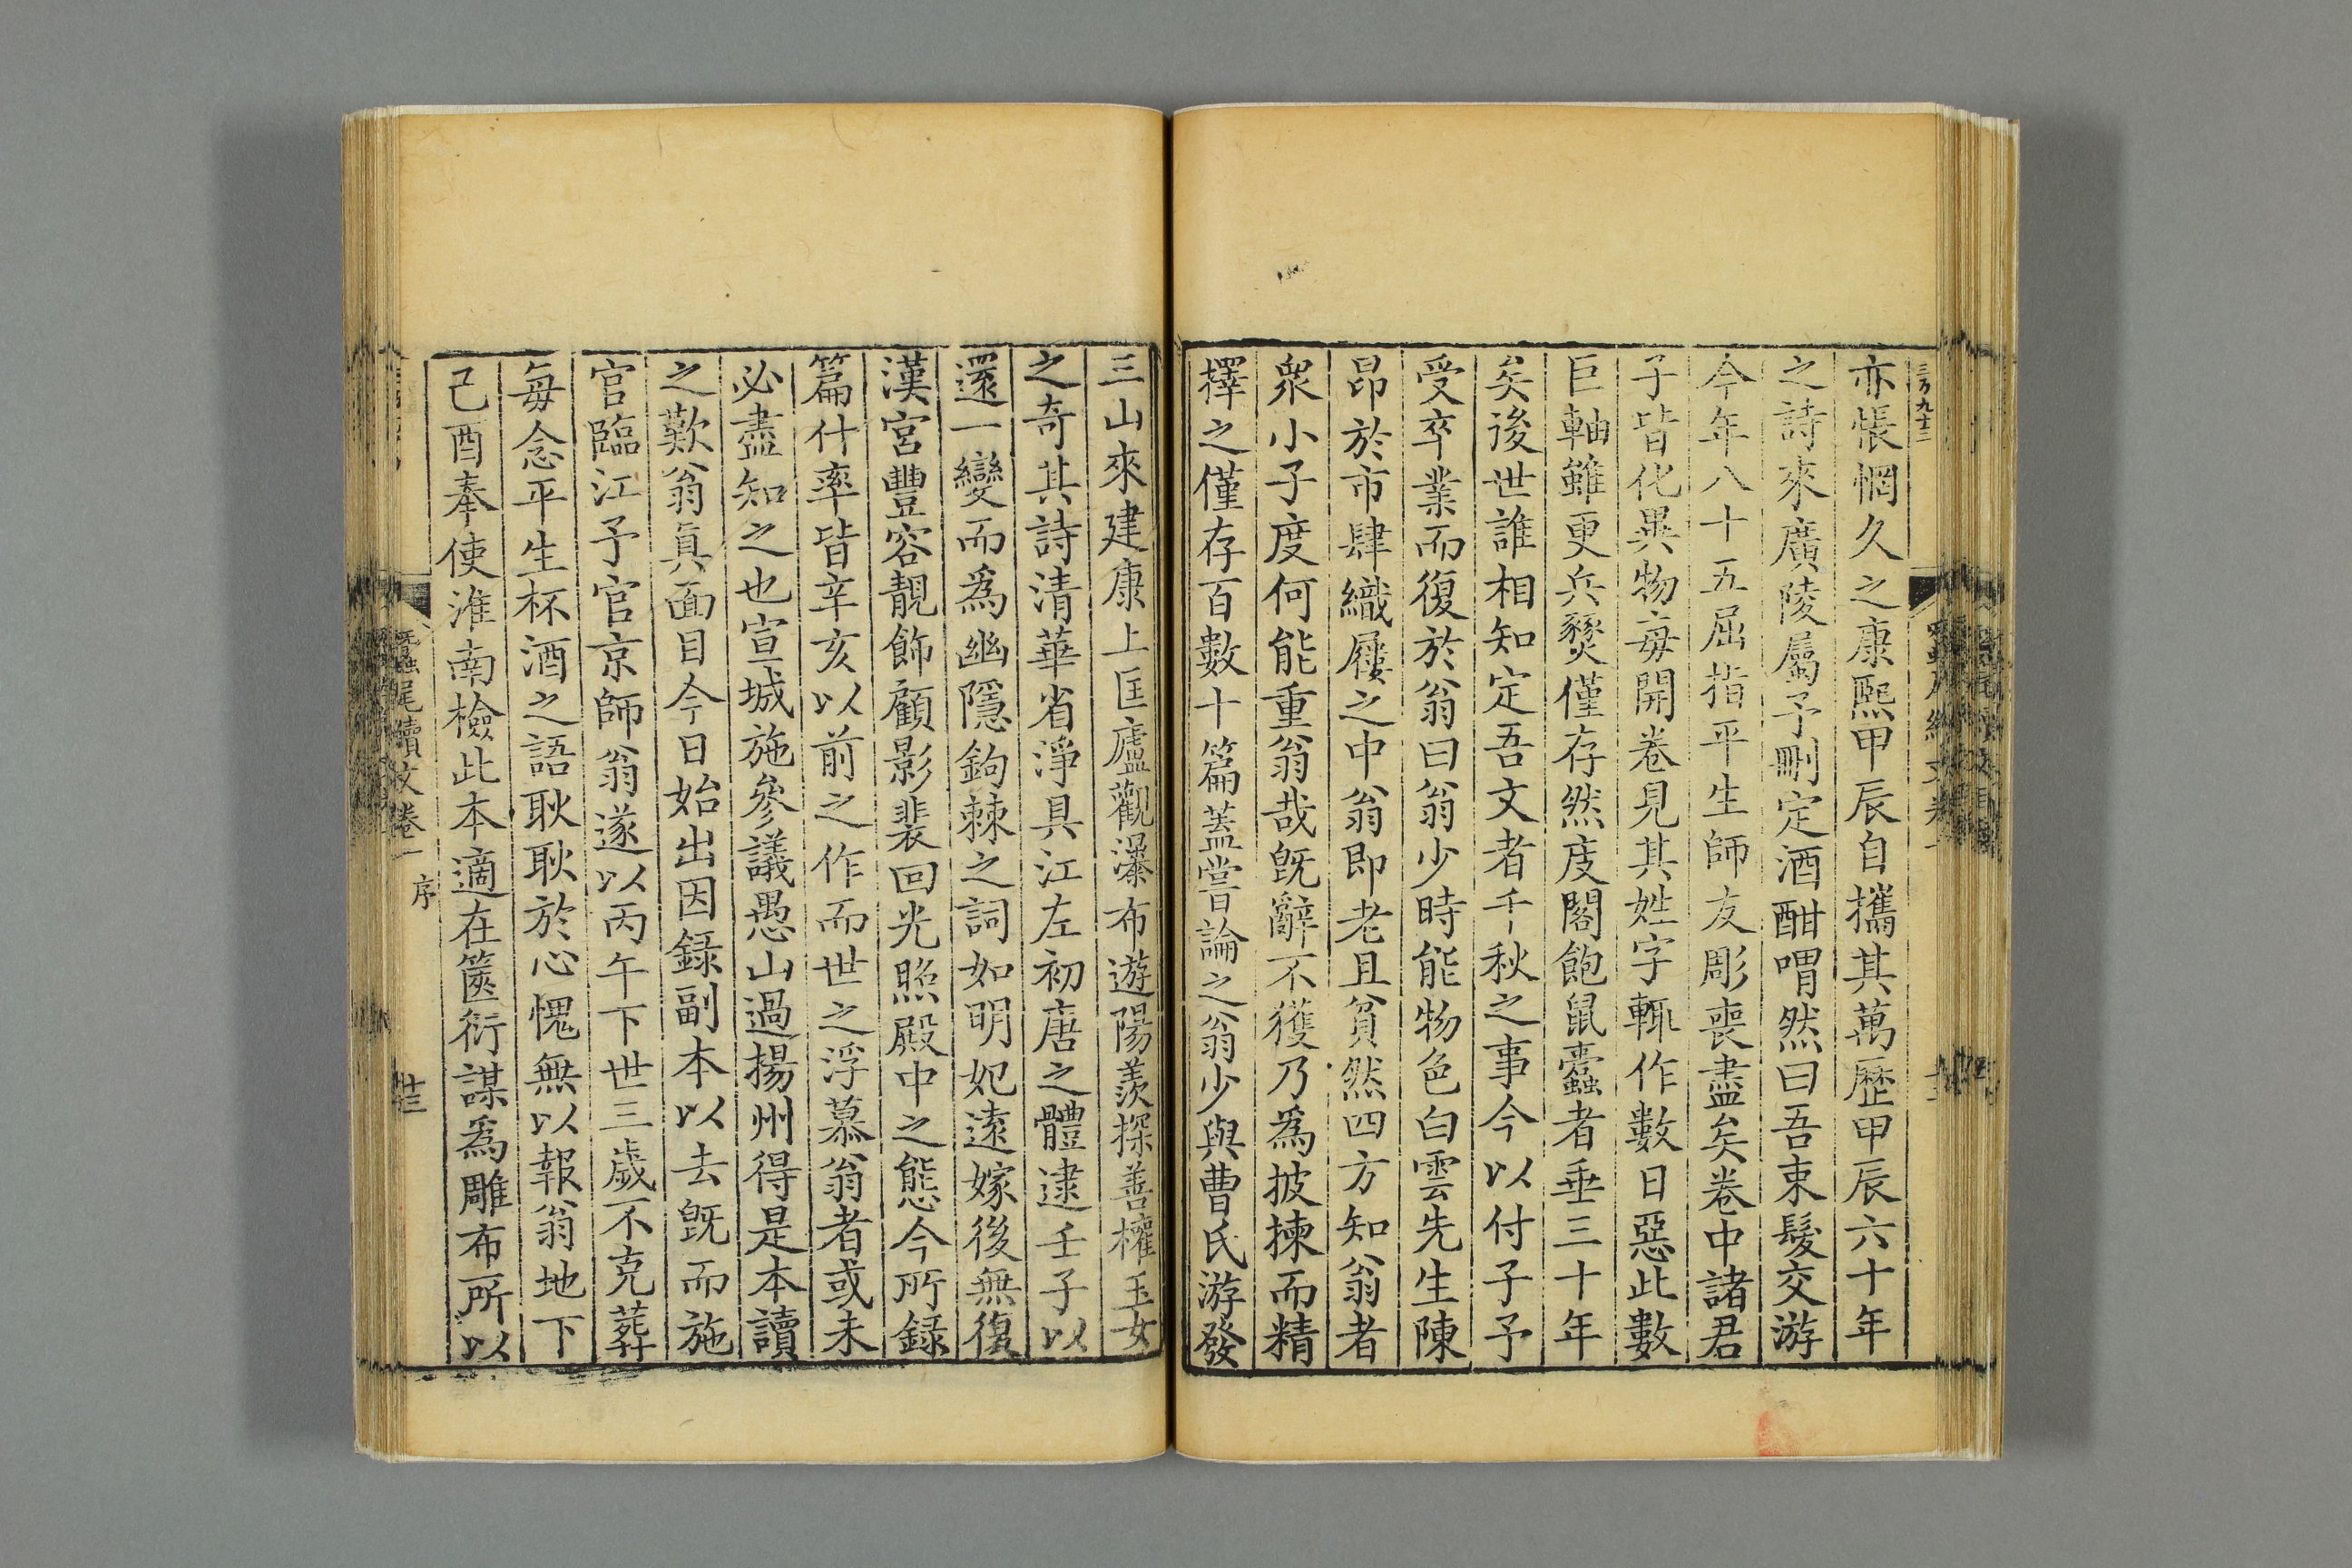 三万九十二
亦悵惘久之康熙甲辰自攜其萬歷甲辰六十年
之詩來廣陵屬予刪定酒酣喟然曰吾束髮交游
今年八十五屈指平生師友彫喪盡矣卷中諸君
子皆化異物每開卷見其姓字輒作數日惡此數
巨軸雖更兵燹僅存然庋閣飽鼠蠹者垂三十年
矣後世誰相知定吾文者千秋之事今以付子予
受卒業而復於翁曰翁少時能物色白雲先生陳
昂於市肆織屨之中翁即老且貧然四方知翁者
衆小子度何能重翁哉旣辭不獲乃為披揀而精
擇之僅存百數十篇蓋嘗論之翁少與曹氏游發
三山來建康上匡廬觀瀑布遊陽羨探善權玉女
之奇其詩清華省淨具江左初唐之體逮壬子以
還一變而為幽隱鉤棘之詞如明妃遠嫁後無復
漢宮豐容靚飾顧影裴回光照殿中之態今所録
篇什率皆辛亥以前之作而世之浮慕翁者或未
必盡知之也宣城施參議愚山過揚州得是本讀
之歎翁眞面目今日始出因録副本以去旣而施
官臨江予官京師翁遂以丙午下世三歲不克葬
每念平生杯酒之語耿耿於心愧無以報翁地下
己酉奉使淮南檢此本適在篋衍謀為雕布所以
蠶尾續文卷一 序
廿三